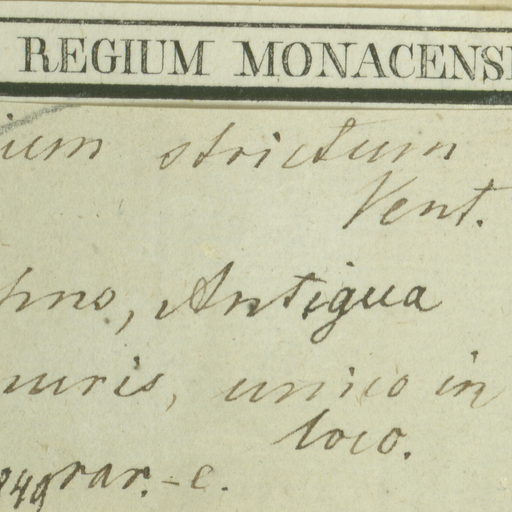 REGIUM MONACENSE
ium strictum
Vent.
pno, Antigua
muris, unico in
loco.
1849 rar. - c.